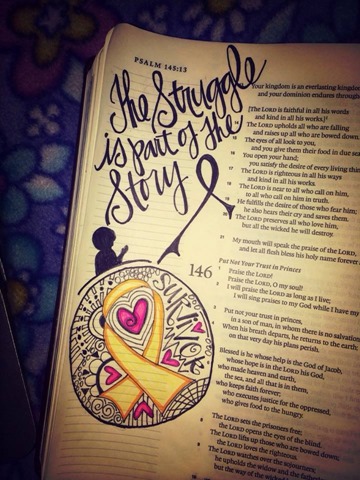 PSALM 145:13
The Struggle
is part of the
Story
SURVIVOR
Your kingdom is an everlasting kingdom
and your dominion endures through
[The LORD is faithful in all his words
and kind in all his works.]
The LORD upholds all who are falling
and raises up all who are bowed down.
The eyes of all look to you,
and you give them their food in due sea
16 You open your hand;
you satisfy the desire of every living thin
17 The LORD is righteous in all his ways
and kind in all his works.
18 The LORD is near to all who call on him,
to all who call on him in truth.
19 He fulfills the desire of those who fear him;
he also hears their cry and saves them.
The LORD preserves all who love him,
but all the wicked he will destroy.
21 My mouth will speak the praise of the LORD,
and let all flesh bless his holy name forever
Put Not Your Trust in Princes
146 Praise the LORD!
Praise the LORD, O my soul!
2 I will praise the LORD as long as I live;
I will sing praises to my God while I have my
3 Put not your trust in princes,
in a son of man, in whom there is no salvation
When his breath departs, he returns to the earth;
on that very day his plans perish.
Blessed is he whose help is the God of Jacob,
whose hope is in the LORD his God,
who made heaven and earth,
the sea, and all that is in them,
who keeps faith forever;
who executes justice for the oppressed,
who gives food to the hungry.
The LORD sets the prisoners free;
the LORD opens the eyes of the blind.
The LORD lifts up those who are bowed down;
the LORD loves the righteous.
The LORD watches over the sojourners;
he upholds the widow and the fatherl
but the way of the wicked